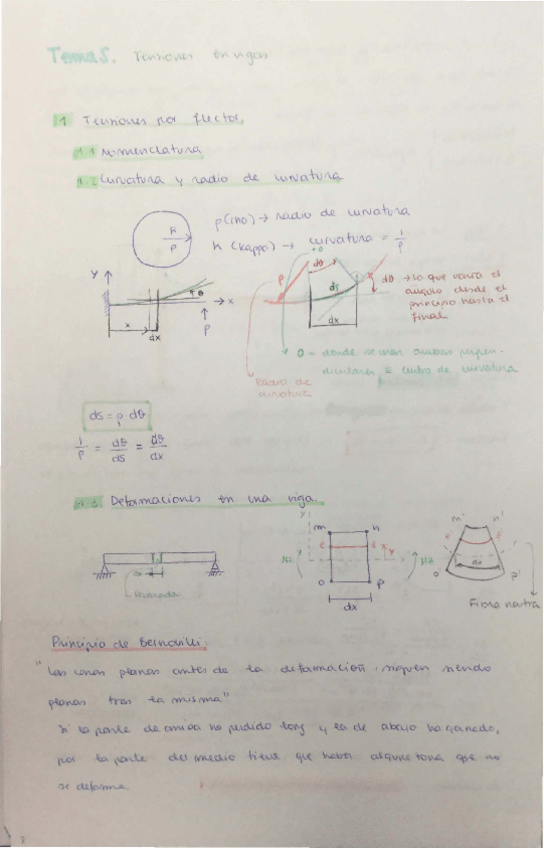 Tema 5. Tensiones en vigas
1 Tensiones por flector.
1.1 Nomenclatura
1.2 Curvatura y radio de curvatura
ρ (rho) → radio de curvatura
κ (kappa) → curvatura = 1/ρ
κ
ρ
y
θ
x
x
dx
P
dθ
ρ
ds
dx
dθ → lo que varía el
ángulo desde el
principio hasta el
final
O = donde se unen ambas perpen-
diculares ≡ centro de curvatura
Radio de
curvatura
ds = ρ · dθ
1/ρ = dθ/ds = dθ/dx
1.3 Deformaciones en una viga.
Rebanada
y
m
n
Mz
y
Mz
o
p
dx
m'
n'
dx
o'
p'
Fibra neutra
Principio de Bernoulli:
"Las caras planas antes de la deformación, siguen siendo
planas tras la misma"
Si la parte de arriba ha perdido long y la de abajo ha ganado,
por la parte del medio tiene que haber alguna zona que no
se deforma.